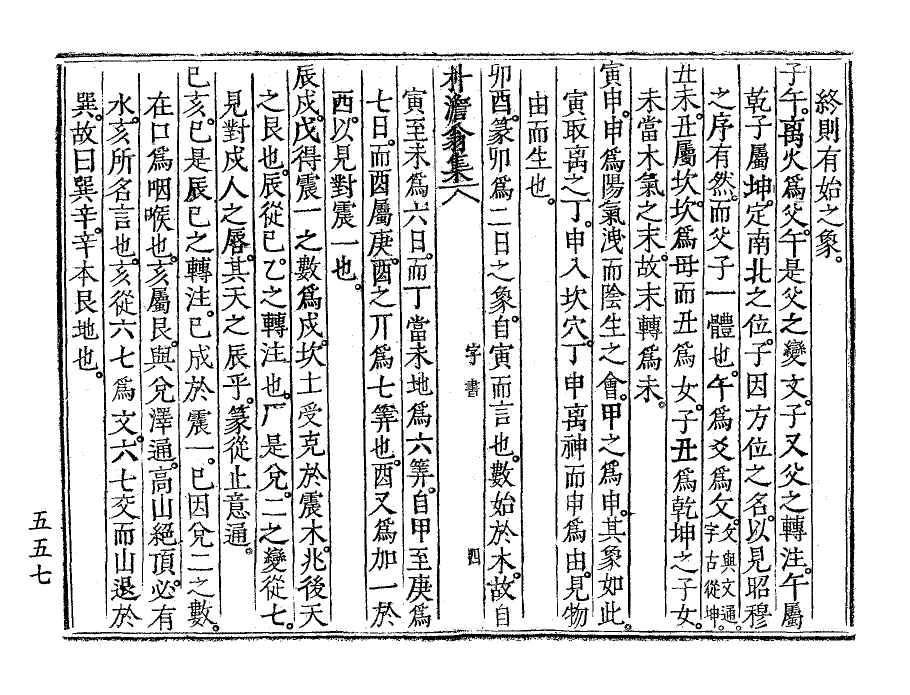 終則有始之象。
子午。离火爲父。午是父之變文。子又父之轉注。午屬
乾子屬坤。定南北之位。子因方位之名。以見昭穆
之序有然。而父子一體也。午爲爻爲父。父與文通。字古從坤。
丑未。丑屬坎。坎爲母而丑爲女。子丑爲乾坤之子女。
未當木氣之末。故末轉爲未。
寅申。申爲陽氣洩而陰生之會。甲之爲申。其象如此。
寅取离之丁。申入坎穴。丁申离神而申爲由。見物
由而生也。
卯酉。篆卯爲二日之象。自寅而言也。數始於木。故自
朴澹翁集 八 字書 四
寅至未爲六日。而丁當未地爲六筭。自甲至庚爲
七日。而酉屬庚。酉之丌爲七筭也。酉又爲加一於
西。以見對震一也。
辰戌。戌得震一之數爲戍。坎土受克於震木。兆後天
之艮也。辰從已。乙之轉注也。厂是兌。二之變從七。
見對戌人之脣。其天之辰乎。篆從止意通。
巳亥。巳是辰巳之轉注。已成於震一。巳因兌二之數
在口爲咽喉也。亥屬艮。與兌澤通。高山絕頂。必有
水。亥所名言也。亥從六七爲文。六七交而山退於
巽。故曰巽辛。辛本艮地也。
五五七